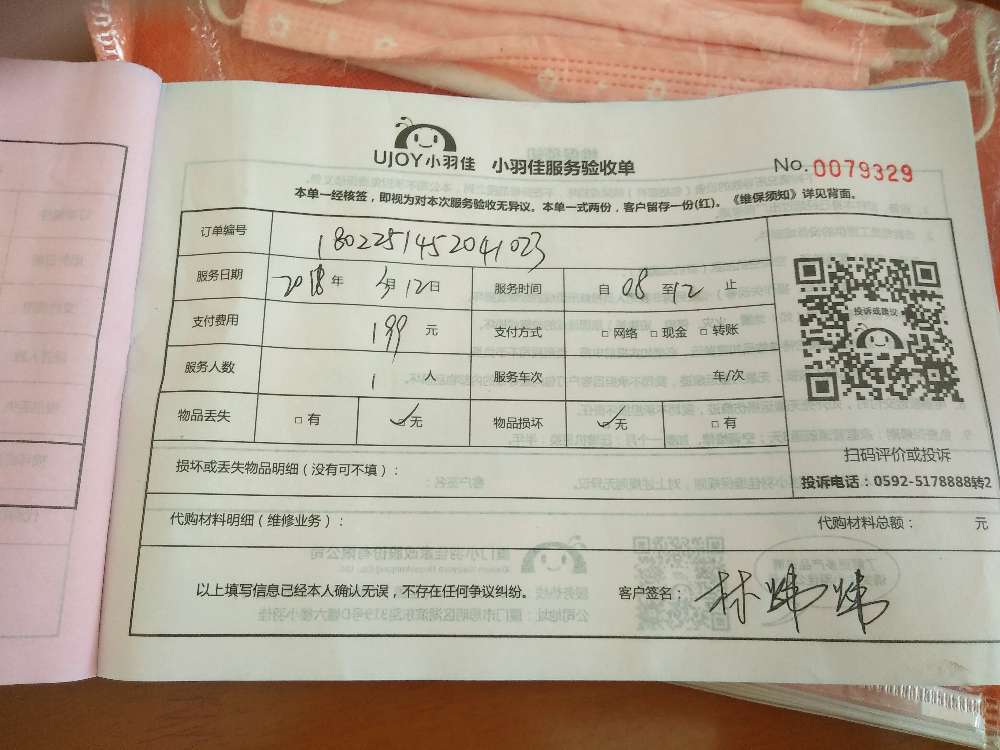 UJOY小羽佳 小羽佳服务验收单 No.0079329
本单一经核签，即视为对本次服务验收无异议。本单一式两份，客户留存一份(红)。《维保须知》详见背面。
订单编号 1802251452041023
服务日期 2018年 3月12日 服务时间 自 08 至12 止
支付费用 199 元 支付方式 □网络 □现金 □转账
服务人数 1 人 服务车次 车/次
物品丢失 □有 ☑无 物品损坏 ☑无 □有
投诉或建议
扫码评价或投诉
投诉电话：0592-5178888转2
损坏或丢失物品明细（没有可不填）：
代购材料明细（维修业务）： 代购材料总额： 元
以上填写信息已经本人确认无误，不存在任何争议纠纷。 客户签名：林炜炜